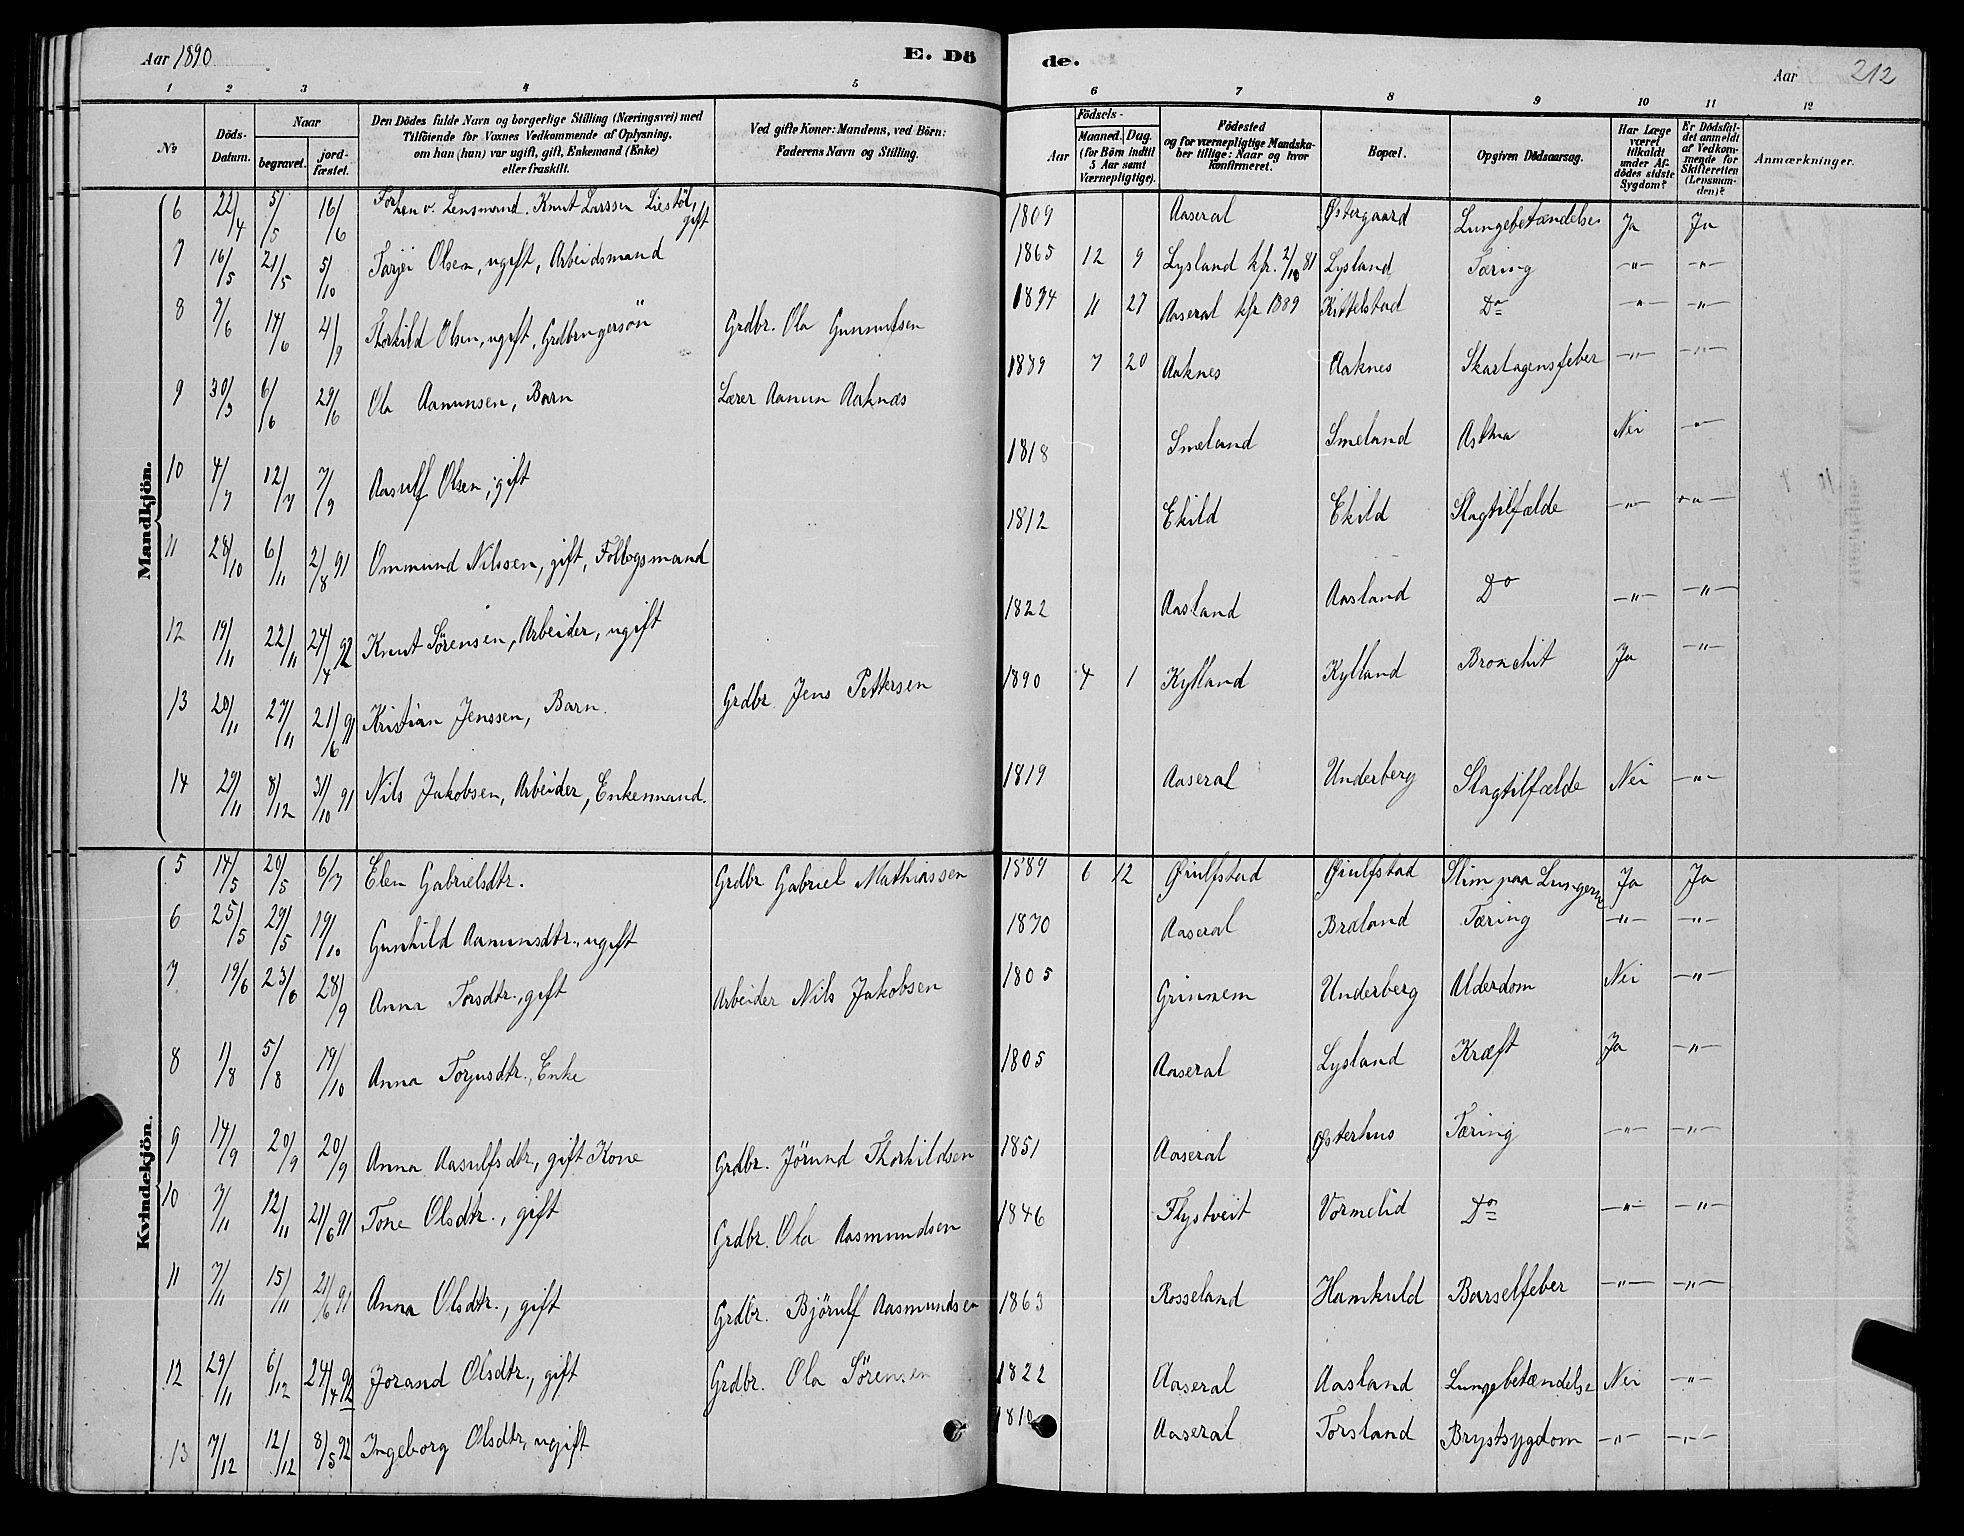 Aar 1890 E. Dö de. Aar 212
1 2 3 4 5 6 7 8 9 10 11 12
No. Döds-Datum. Naar begravet. jordfæstet. Den Dödes fulde Navn og borgerlige Stilling (Næringsvei) med Tilföiende for Voxnes Vedkommende af Oplysning, om han (hun) var ugift, gift, Enkemand (Enke) eller fraskilt. Ved gifte Koner: Mandens, ved Börn: Faderens Navn og Stilling. Födsels- Aar Maaned. Dag. (for Börn indtil 5 Aar samt Værnepligtige). Födested og for værnepligtige Mandskaber tillige: Naar og hvor konfirmeret. Bopæl. Opgiven Dödsaarsag. Har Læge været tilkaldt under Afdödes sidste Sygdom? Er Dödsfaldet anmeldt af Vedkommende for Skifteretten (Lensmanden)? Anmærkninger.
Mandkjön.
6 22/4 5/5 16/6 Forhenv. Lensmand. Knut Larssen Liestöl, gift 1809 Aaseral Østergaard Lungebetændelse Ja Ja
7 16/5 21/5 5/10 Tarjei Olsen, ugift, Arbeidsmand 1865 12 9 Lysland kfr. 2/10 81 Lysland Tæring -"- -"-
8 7/6 14/6 4/9 Thorkild Olsen, ugift, Grdbrugersön Grdbr. Ola Gunnufsen 1874 11 27 Aaseral kfr 1889 Kittelstad Do -"- -"-
9 30/3 6/6 29/6 Ola Aamunsen, Barn Lærer Aanun Aaknæs 1889 7 20 Aaknes Aaknes Skarlagensfeber -"- -"-
10 4/7 12/7 7/9 Aasulf Olsen, gift 1818 Smeland Smeland Astma Nei -"-
11 28/10 6/11 2/8 91 Ommund Nilssen, gift, Follogsmand 1812 Ekild Ekild Slagtilfælde -"- -"-
12 19/11 22/11 24/4 92 Knut Sörensen, Arbeider, ugift 1822 Aasland Aasland Do -"- -"-
13 20/11 27/11 21/6 91 Kristian Jenssen, Barn. Grdbr. Jens Pettersen 1890 4 1 Kylland Kylland Bronchit Ja -"-
14 29/11 8/12 31/10 91 Nils Jakobsen, Arbeider, Enkemand. 1819 Aaseral Underberg Slagtilfælde Nei -"-
Kvindekjön.
5 14/5 20/5 6/7 Elen Gabrielsdtr. Grdbr Gabriel Mathiassen 1889 6 12 Øiulfstad Øiulfstad Slim paa Lungerne Ja Ja
6 25/5 29/5 19/10 Gunhild Aanunsdtr., ugift 1870 Aaseral Braland Tæring -"- -"-
7 19/6 23/6 28/9 Anna Torsdtr., gift Arbeider Nils Jakobsen 1805 Grinnem Underberg Alderdom Nei -"-
8 1/8 5/8 19/10 Anna Torjusdtr., Enke 1805 Aaseral Lysland Kræft Ja -"-
9 14/9 20/9 20/9 Anna Aasulfsdtr., gift Kone Grdbr. Jörund Thorkildsen 1851 Aaseral Østerhus Tæring -"- -"-
10 7/11 12/11 21/6 91 Tone Olsdtr., gift Grdbr. Ola Aasmundsen 1846 Flystveit Vormelid Do -"- -"-
11 7/11 15/11 21/6 91 Anna Olsdtr., gift Grdbr. Björulf Aasmundsen 1863 Rosseland Hamkuld Barselfeber -"- -"-
12 29/11 6/12 24/4 92 Jorand Olsdtr., gift Grdbr. Ola Sörensen 1822 Aaseral Aasland Lungebetændelse Nei -"-
13 7/12 12/12 8/5 92 Ingeborg Olsdtr., ugift 1810 Aaseral Torsland Brystsygdom -"- -"-